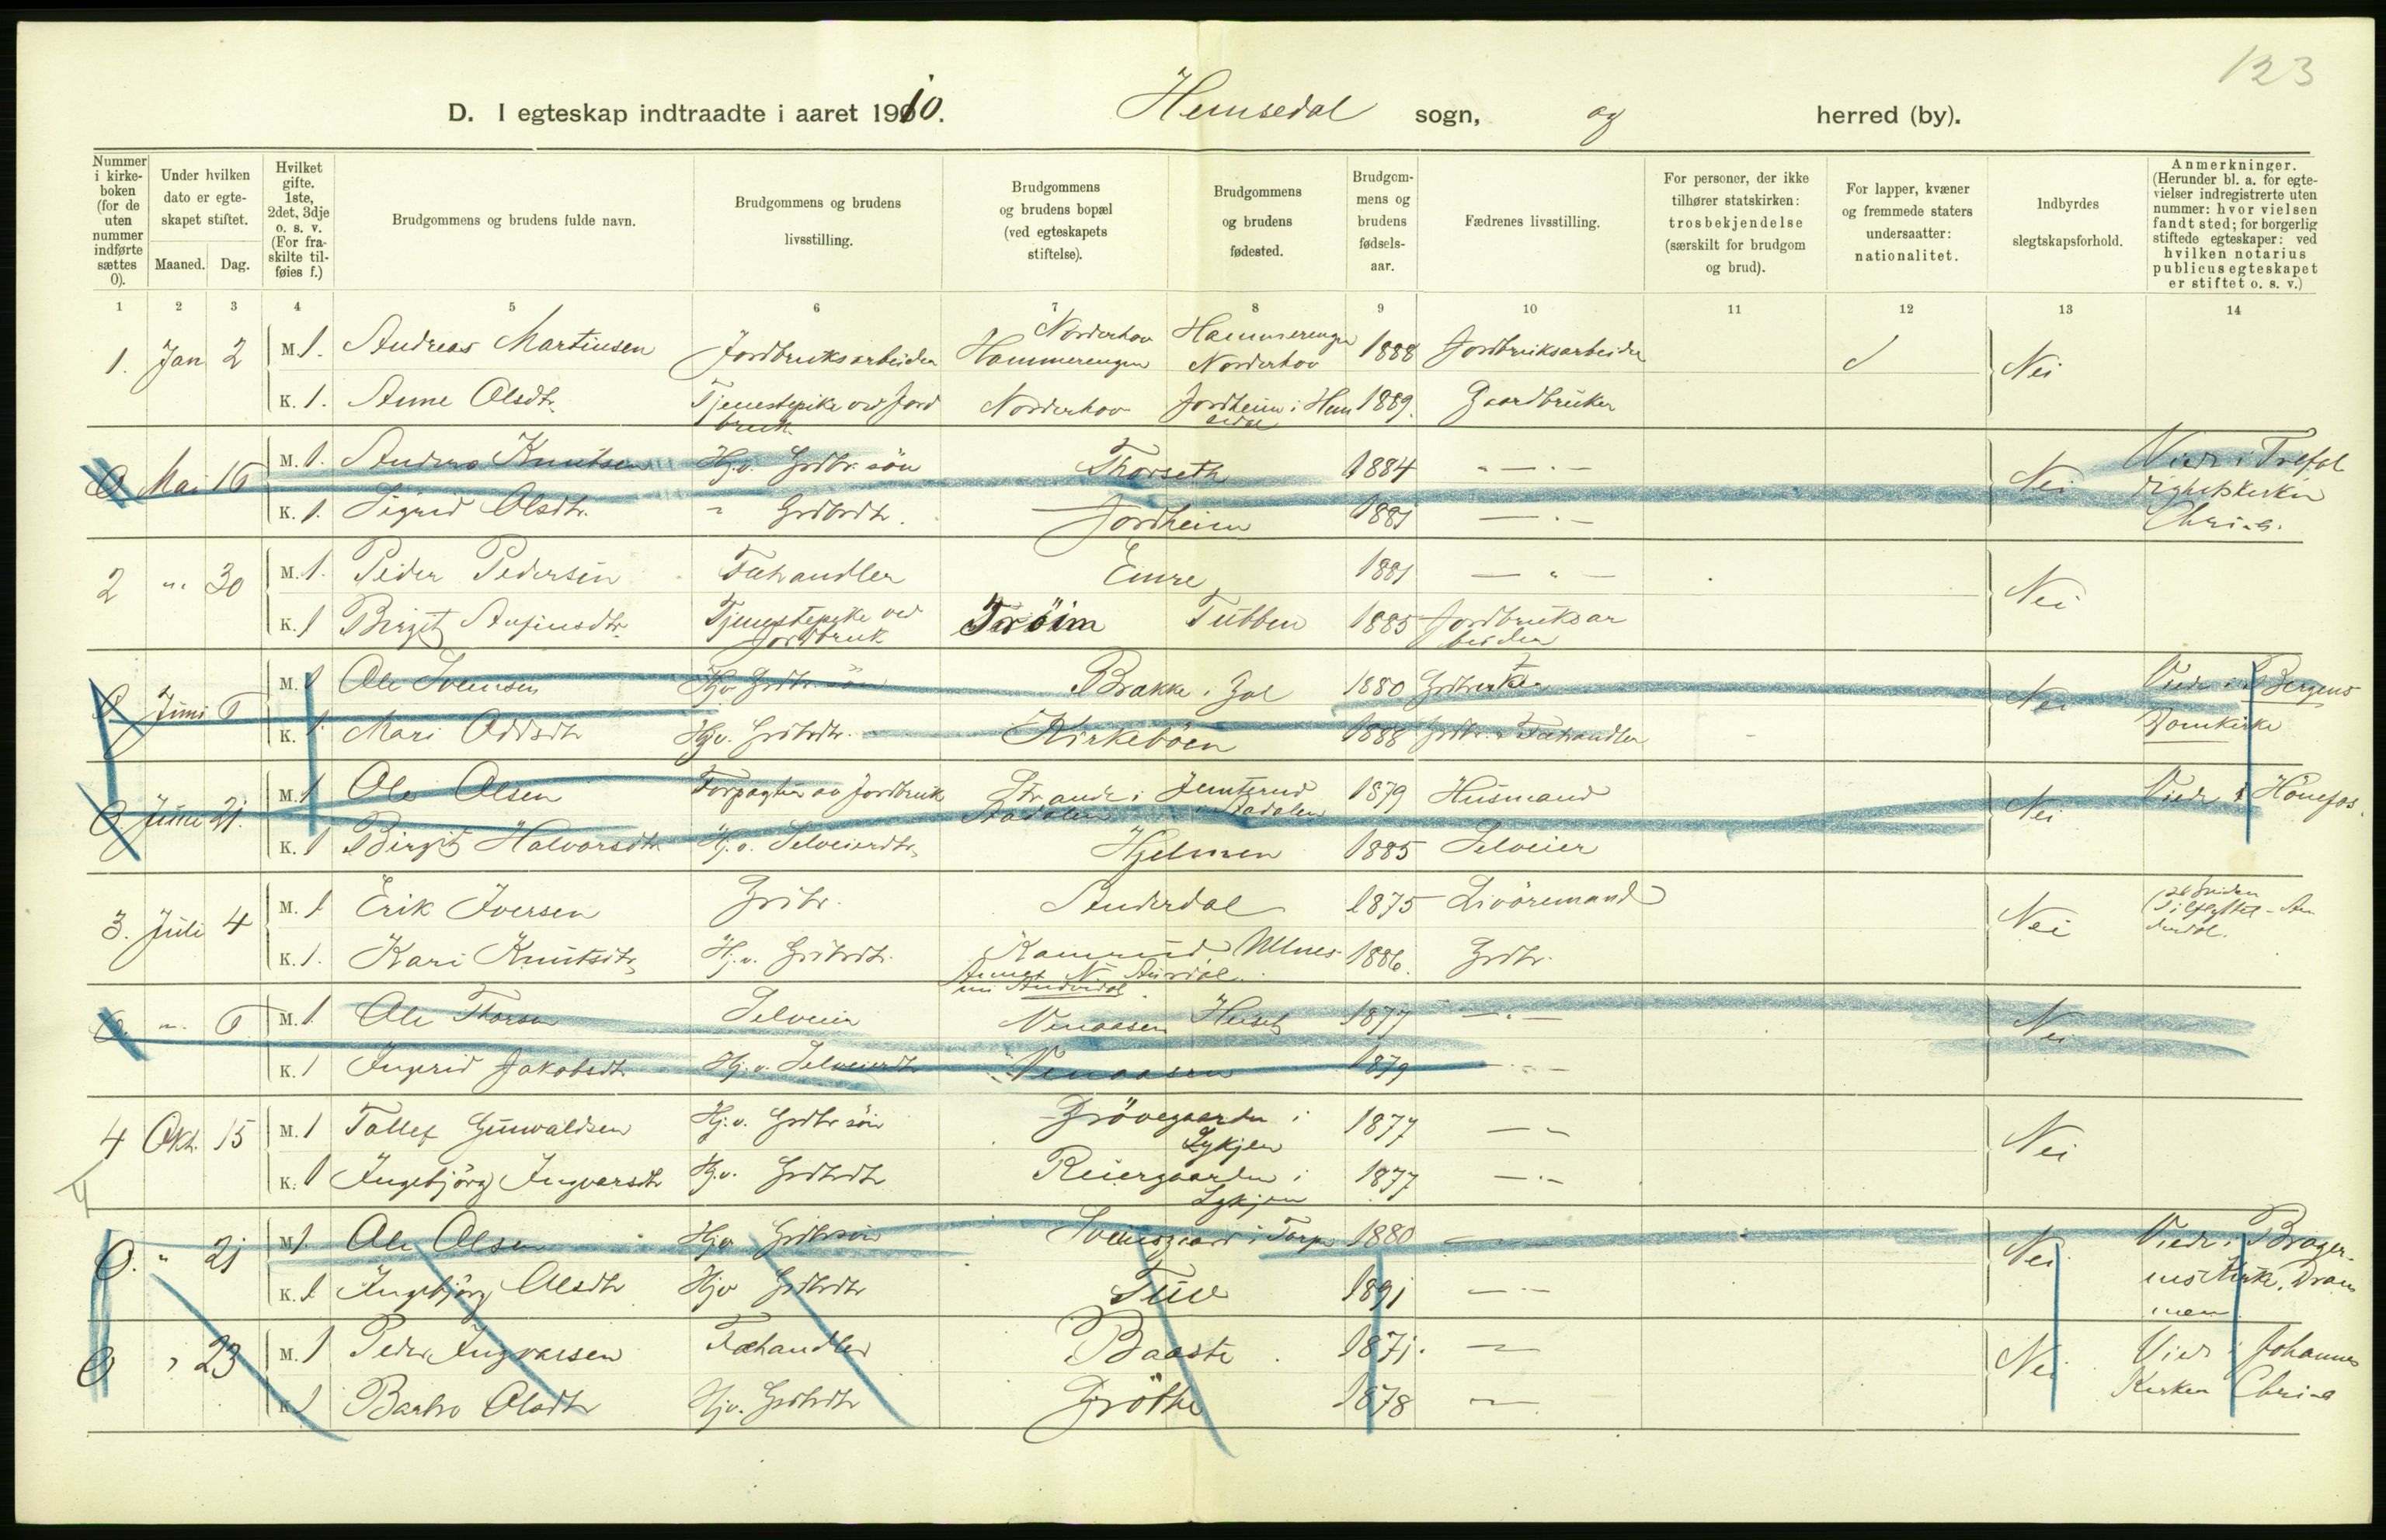 123
D. I egteskap indtraadte i aaret 1910. Hemsedal sogn, og herred (by).
Nummer i kirkeboken (for de uten nummer indførte sættes 0).
Under hvilken dato er egteskapet stiftet.
Maaned. Dag.
Hvilket gifte. 1ste, 2det, 3dje o. s. v. (For fraskilte tilføies f.)
Brudgommens og brudens fulde navn.
Brudgommens og brudens livsstilling.
Brudgommens og brudens bopæl (ved egteskapets stiftelse).
Brudgommens og brudens fødested.
Brudgommens og brudens fødselsaar.
Fædrenes livsstilling.
For personer, der ikke tilhører statskirken: trosbekjendelse (særskilt for brudgom og brud).
For lapper, kvæner og fremmede staters undersaatter: nationalitet.
Indbyrdes slegtskapsforhold.
Anmerkninger. (Herunder bl. a. for egtevielser indregistrerte uten nummer: hvor vielsen fandt sted; for borgerlig stiftede egteskaper: ved hvilken notarius publicus egteskapet er stiftet o. s. v.)
1 2 3 4 5 6 7 8 9 10 11 12 13 14
1. Jan 2 M. 1. Andreas Martinsen Jordbruksarbeider Norderhov Hammerengen Hammerengen Norderhov 1888 Jordbruksarbeider Nei
K. 1. Anne Olsdtr. Tjenestepike ved Jordbruk Norderhov Jordheim i Hemsedal 1889. Gaardbruker
0 Mai 16 M. 1. Anders Knutsen Hj. v. Grdbr. søn Thorseth 1884 " — " — Nei Viede i Trefoldighetskirken Chria.
K. 1. Sigrid Olsdtr. " Grdbrdtr. Jordheim 1881 — " —
2 " 30 M. 1. Peder Pedersen Fæhandler Emre 1881 — " — Nei
K. 1 Birgit Anfinsdtr. Tjenestepike ved Jordbruk Trøim Tubben 1885 Jordbruksarbeider
0 Juni M. 1 Ole Svensen Hjv Grdbr. søn Brakke i Gol 1880 Nei Viede i Bergens Domkirke
K. 1. Mari Oddsdtr Hjv. Grdbrdtr. Kirkebøen 1888 Grdbr. Fæhandler
0 Juni 21. M. 1 Ole Olsen Forpagter av Jordbruk Strande i Aadalen Jemterud i Aadalen 1879 Husmand Nei Viede i Hønefos.
K. 1 Birgit Halvorsdtr Hj. v. Selveierdtr. Hjelmen 1885 Selveier
3. Juli 4 M. 1 Erik Iversen Grdbr. Anderdal 1875 Livøremand Nei
K. 1. Kari Knutsdtr Hj. v. Grdbrdtr. Ulnes 1886. Grdbr.
0. " M. 1. Ole Thorsen Selveier Venaasen 1877 — " — Nei
K. 1 Ingrid Jakobsdtr Hj. v. Selveierdtr Venaasen 1879 — " —
4 Okt. 15 M. 1 Tollef Gunvaldsen Hj. v. Grdbr søn Grøvegaarden i Lykjen 1877 — " — Nei
K. 1 Ingebjørg Ingvarsdtr Hj. v. Grdbrdtr Reiergaarden i Lykjen 1877 — " —
0. " 21 M. 1 Ole Olsen Hjv Grdbrsøn Svensgaard i Torpe 1880 — Nei Viede i Bragernes Kirke. Drammen
K. 1 Ingebjørg Olsdtr Hjv Grdbrdtr Tuv 1891 — " —
0 " 23 M. 1 Peder Ingvarsen Fæhandler Baaste 1871. — Nei Viede i Johannes Kirken Chria
K. 1 Barbro Olsdtr Hjv. Grdbrdtr Grøthe 1878 —